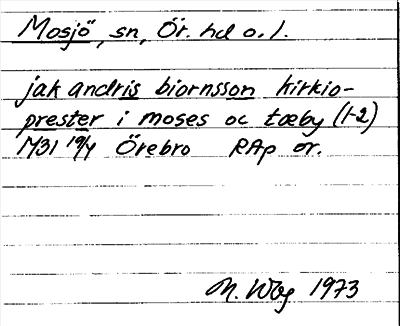 Mosjö, sn, Ör. hd o. l.
jak andris biornsson kirkio-
prester i moses oc tæby (1-2)
1431 19/4 Örebro RAp or.
M. Wbg 1973